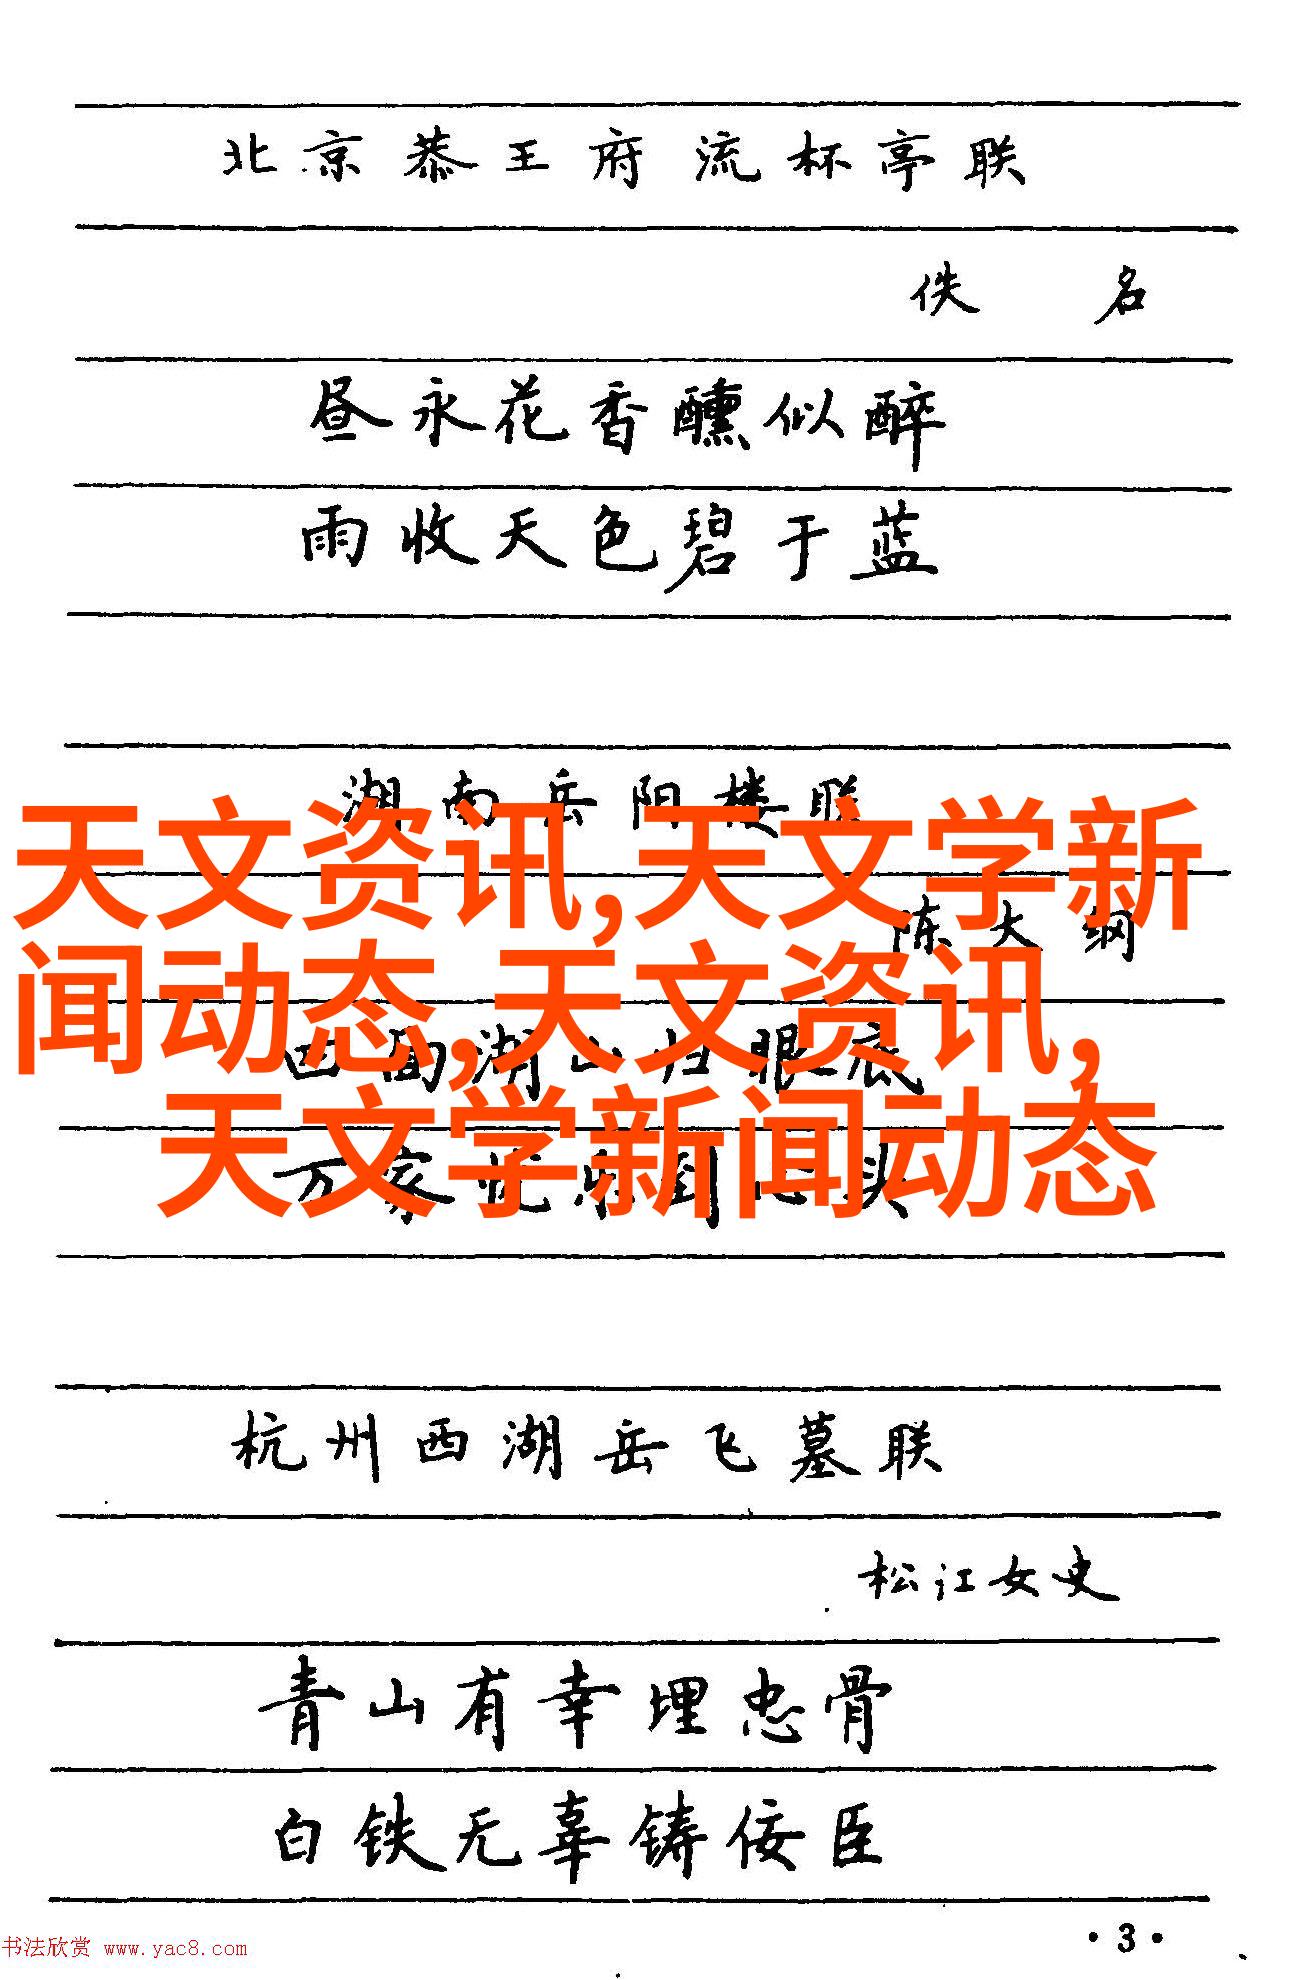 北京恭王府流杯亭联
佚名
昼永花香醺似醉
雨收天色碧于蓝
湖南岳阳楼联
天文资讯,天文学新
陈大纲
闻动态,天文资讯,
四面湖山归眼底
天文学新闻动态
万家忧乐到心头
杭州西湖岳飞墓联
松江女史
青山有幸埋忠骨
白铁无辜铸佞臣
·3·
书法欣赏 www.yac8.com